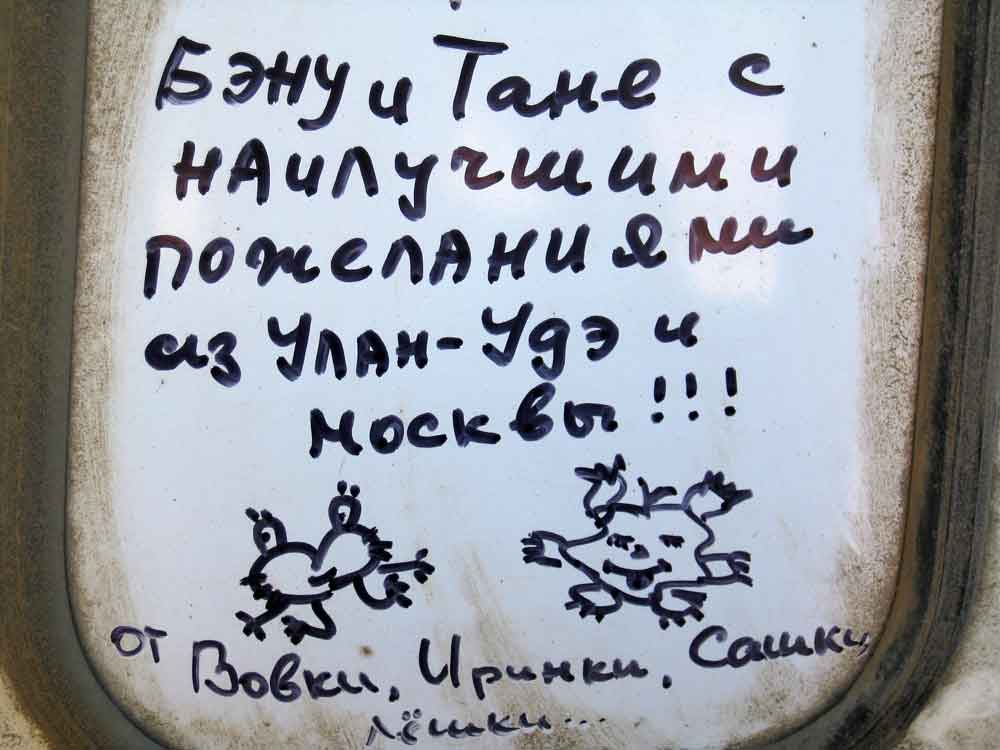 Бэну и Тане с
наилучшими
пожеланиями
из Улан-Удэ и
Москвы!!!
от Вовки, Иринки, Сашки,
Лёшки...